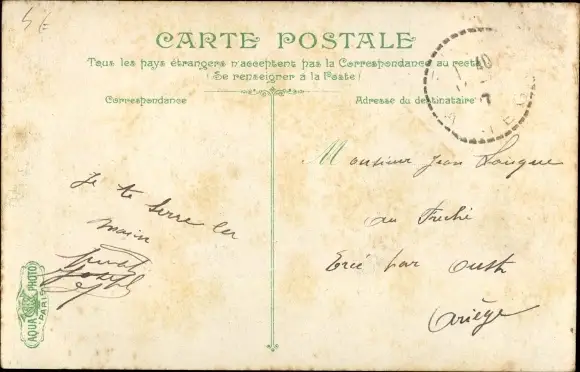 CARTE POSTALE
Tous les pays étrangers n'acceptent pas la Correspondance au recto
(Se renseigner à la Poste)
Correspondance
Adresse du destinataire
10
7
Monsieur Jean
au
Ercé par Oust
Ariège
Je te serre la
main
Joseph
AQUA PHOTO
PARIS